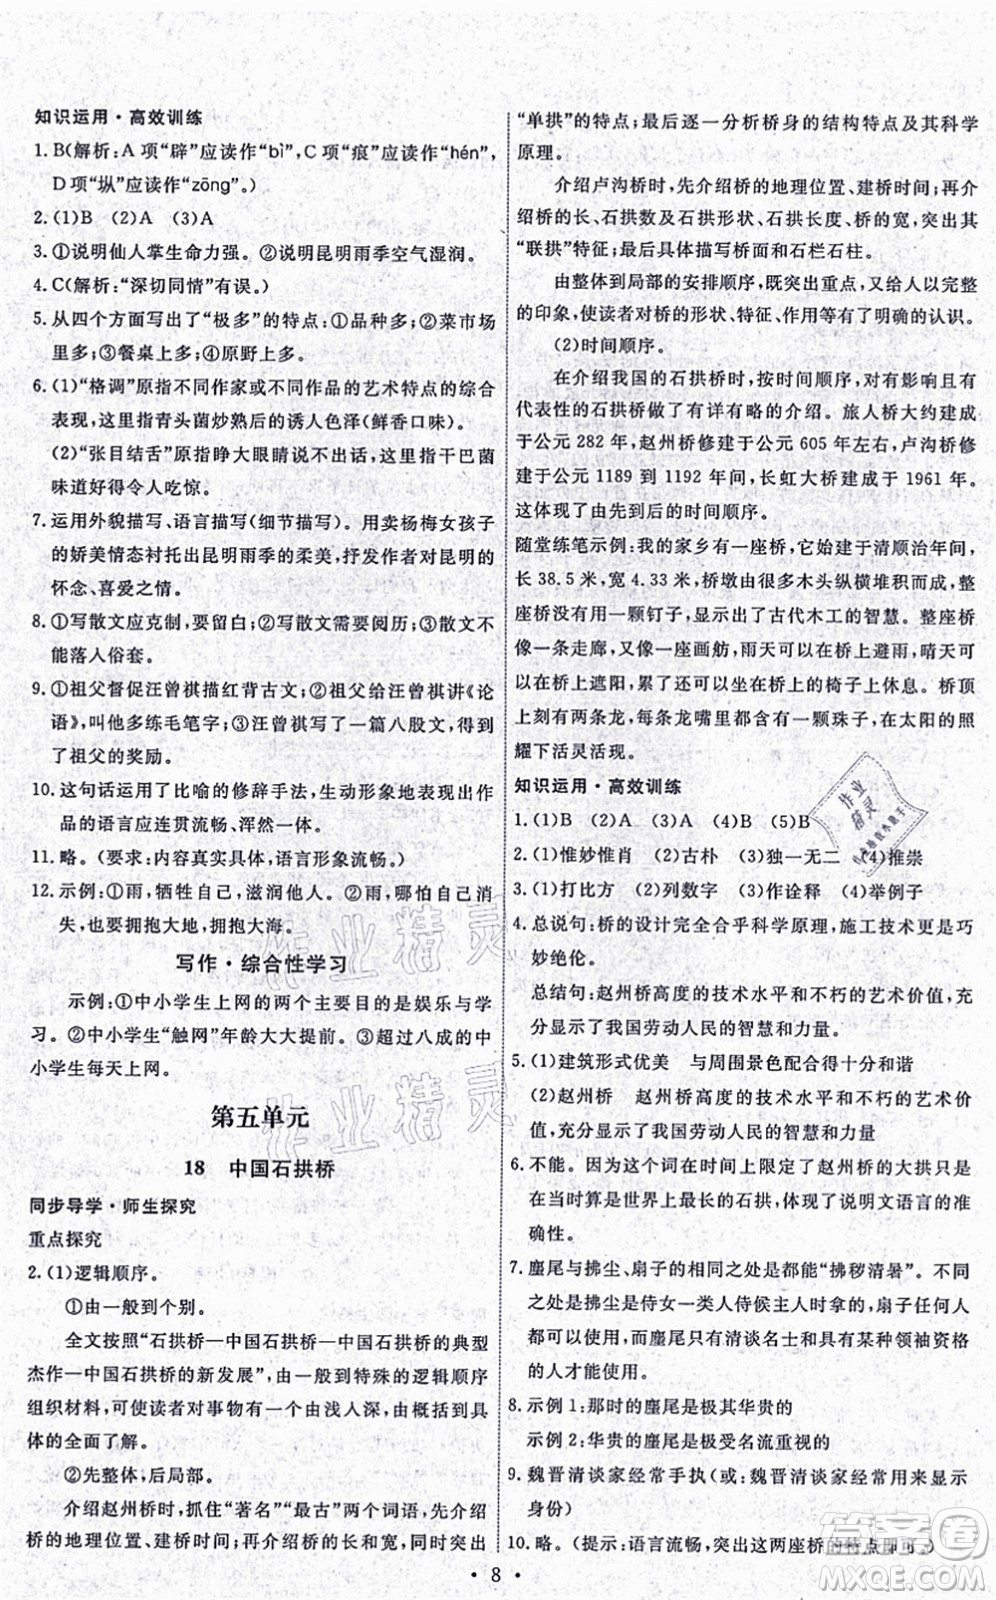 知识运用·高效训练
1. B(解析:A 项“辟”应读作“bì”,C 项“痕”应读作“hén”,
D 项“纵”应读作“zōng”。)
2. (1)B (2)A (3)A
3. ①说明仙人掌生命力强。②说明昆明雨季空气湿润。
4. C(解析:“深切同情”有误。)
5. 从四个方面写出了“极多”的特点:①品种多;②菜市场
里多;③餐桌上多;④原野上多。
6. (1)“格调”原指不同作家或不同作品的艺术特点的综合
表现,这里指青头菌炒熟后的诱人色泽(鲜香口味)。
(2)“张目结舌”这里指睁大眼睛说不出话,这里指干巴菌
味道好得令人吃惊。
7. 运用外貌描写、语言描写(细节描写)。用卖杨梅女孩子
的娇美情态衬托出昆明雨季的柔美,抒发作者对昆明的
怀念、喜爱之情。
8. ①写散文应克制,要留白;②写散文需要阅历;③散文不
能落入俗套。
9. ①祖父督促汪曾祺描红背古文;②祖父给汪曾祺讲《论
语》,叫他多练毛笔字;③汪曾祺写了一篇八股文,得到了
祖父的奖励。
10. 这句话运用了比喻的修辞手法,生动形象地表现出作
品的语言应连贯流畅、浑然一体。
11. 略。(要求:内容真实具体,语言形象流畅。)
12. 示例:①雨,牺牲自己,滋润他人。②雨,哪怕自己消
失,也要拥抱大地,拥抱大海。
写作·综合性学习
示例:①中小学生上网的两个主要目的是娱乐与学
习。②中小学生“触网”年龄大大提前。③超过八成的中
小学生每天上网。
第五单元
18 中国石拱桥
同步导学·师生探究
重点探究
2. (1)逻辑顺序。
①由一般到个别。
全文按照“石拱桥—中国石拱桥—中国石拱桥的典型
杰作—中国石拱桥的新发展”,由一般到特殊的逻辑顺序
组织材料,可以使读者对事物有一个由浅入深、由一般到具
体的全面了解。
②先整体,后局部。
介绍赵州桥时,抓住“著名”“最古”两个词语,先介绍
桥的地理位置、建桥时间;再介绍桥的长和宽,突出
“单拱”的特点;最后逐一分析桥身的结构特点及其科学
原理。
介绍卢沟桥时,先介绍桥的地理位置、建桥时间;再介
绍桥的长、石拱数及石拱形状、石拱长度、桥的宽,突出其
“联拱”特征;最后具体描写桥面和石栏石柱。
由整体到局部的安排顺序,重点突出,能给人以完整
的印象,使读者对桥的形状、特征、作用等有了明确的认识。
(2)时间顺序。
在介绍我国的石拱桥时,按时间顺序,对有影响且具有
代表性的石拱桥做了有详有略的介绍。旅人桥大约建成
于公元 282 年,赵州桥修建于公元 605 年左右,卢沟桥修
建于公元 1189 到 1192 年间,长虹大桥建成于 1961 年。
这体现了由先到后的时间顺序。
随堂练笔示例:我的家乡有一座桥,它始建于清顺治年间,
长 38.5 米,宽 4.33 米,桥墩由很多木头纵横堆积而成,
整座桥没有用一颗钉子,显示出了古代木工的智慧。整座桥
像一条走廊,又像一座画舫,雨天可以在桥上避雨,晴天可以
在桥上遮阳,累了可以坐在桥上的椅子上休息。桥顶
上刻有两条龙,每条龙嘴里都含有一颗珠子,在太阳的照
耀下活灵活现。
知识运用·高效训练
1. (1)B (2)A (3)B (4)A (5)B
2. (1)惟妙惟肖 (2)古朴 (3)独一无二 (4)推崇
3. (1)打比方 (2)列数字 (3)作诠释 (4)举例子
4. 总说句:桥的设计完全合乎科学原理,施工技术更是巧
妙绝伦。
总结句:赵州桥高度的技术水平和不朽的艺术价值,充
分显示了我国劳动人民的智慧和力量。
5. (1)建筑形式优美 与周围景色配合得十分和谐
(2)赵州桥 赵州桥高度的技术水平和不朽的艺术价
值,充分显示了我国劳动人民的智慧和力量
6. 不能。因为这个词在时间上限制了赵州桥的大拱只是
在当时算是世界上最长的石拱,体现了说明文语言的准
确性。
7. 麈尾与拂尘、扇子的相同之处是都能“拂秽清暑”。不同
之处是拂尘是侍女一类人侍候主人时拿的,扇子任何人
都可以使用,麈尾只有清谈名士和具有某种领袖资格的
人才能使用。
8. 示例 1:那时的麈尾是极其华贵的
示例 2:华贵的麈尾是极受名流重视的
9. 魏晋清谈家经常手执(或:魏晋清谈家经常用来显示
身份)
10. 略。(提示:语言流畅,突出这两座桥的特点即可。)
• 8 •
作业精灵
作业精灵
作业
精灵
答案圈
MXQE.COM